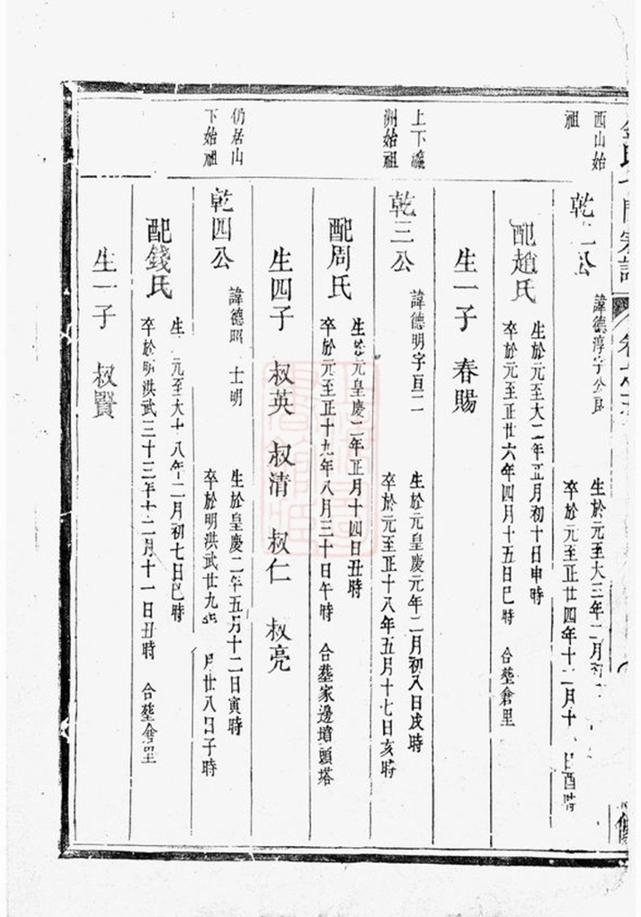 西山始
祖
乾二公
諱德淳字公
生於元至大三年二月初
卒於元至正廿四年十二月十日酉時
配趙氏
生於元至大二年正月初十日申時
卒於元至正廿六年四月十五日巳時 合塟倉里
生一子 春賜
上下
始祖
乾三公
諱德明字亘二
生於元皇慶元年二月初八日戌時
卒於元至正十八年五月十七日亥時
配周氏
生於元皇慶二年正月十四日丑時
卒於元至正十九年八月三十日午時 合塟家邊墳頭塔
生四子 叔英 叔清 叔仁 叔亮
仍居山
下始祖
乾四公
諱德昭 士明
生於皇慶二年五月十二日寅時
卒於明洪武廿九 月廿八日子時
配錢氏
生 元至大十八年二月初七日巳時
卒於明洪武三十三年十二月十一日丑時 合塟倉里
生一子 叔賢